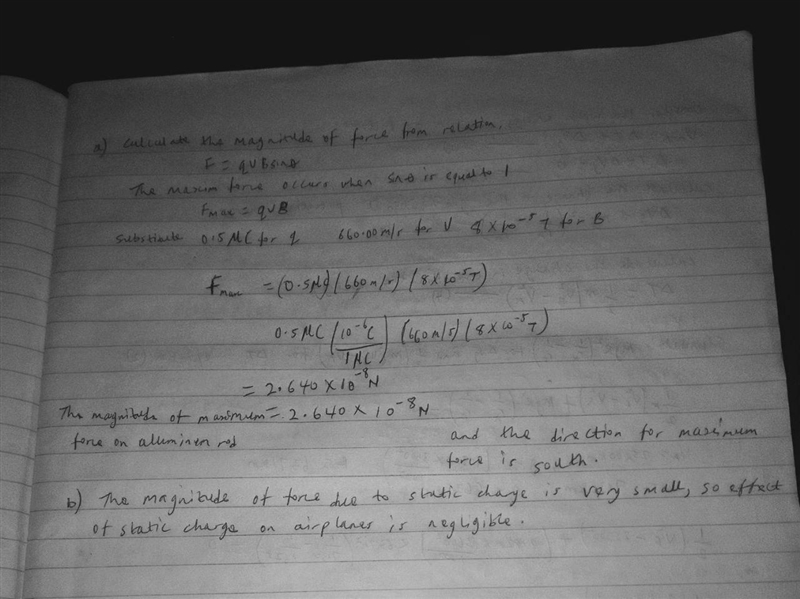 a) Calculate the magnitude of force from relation,
F = qVBsinθ
The maxium force occurs when sinθ is equal to 1
Fmax = qVB
Substitute 0.5 μC for q 660.00 m/s for V 8 × 10⁻⁵ T for B
Fmax = (0.5μC) (660 m/s) (8 × 10⁻⁵ T)
0.5 μC (10⁻⁶ C / 1 μC) (660 m/s) (8 × 10⁻⁵ T)
= 2.640 × 10⁻⁸ N
The magnitude of maximum = 2.640 × 10⁻⁸ N
force on alluminen rod and the direction for maximum
force is south.
b) The magnitude of force due to static charge is very small, so effect
of static charge on airplanes is negligible.